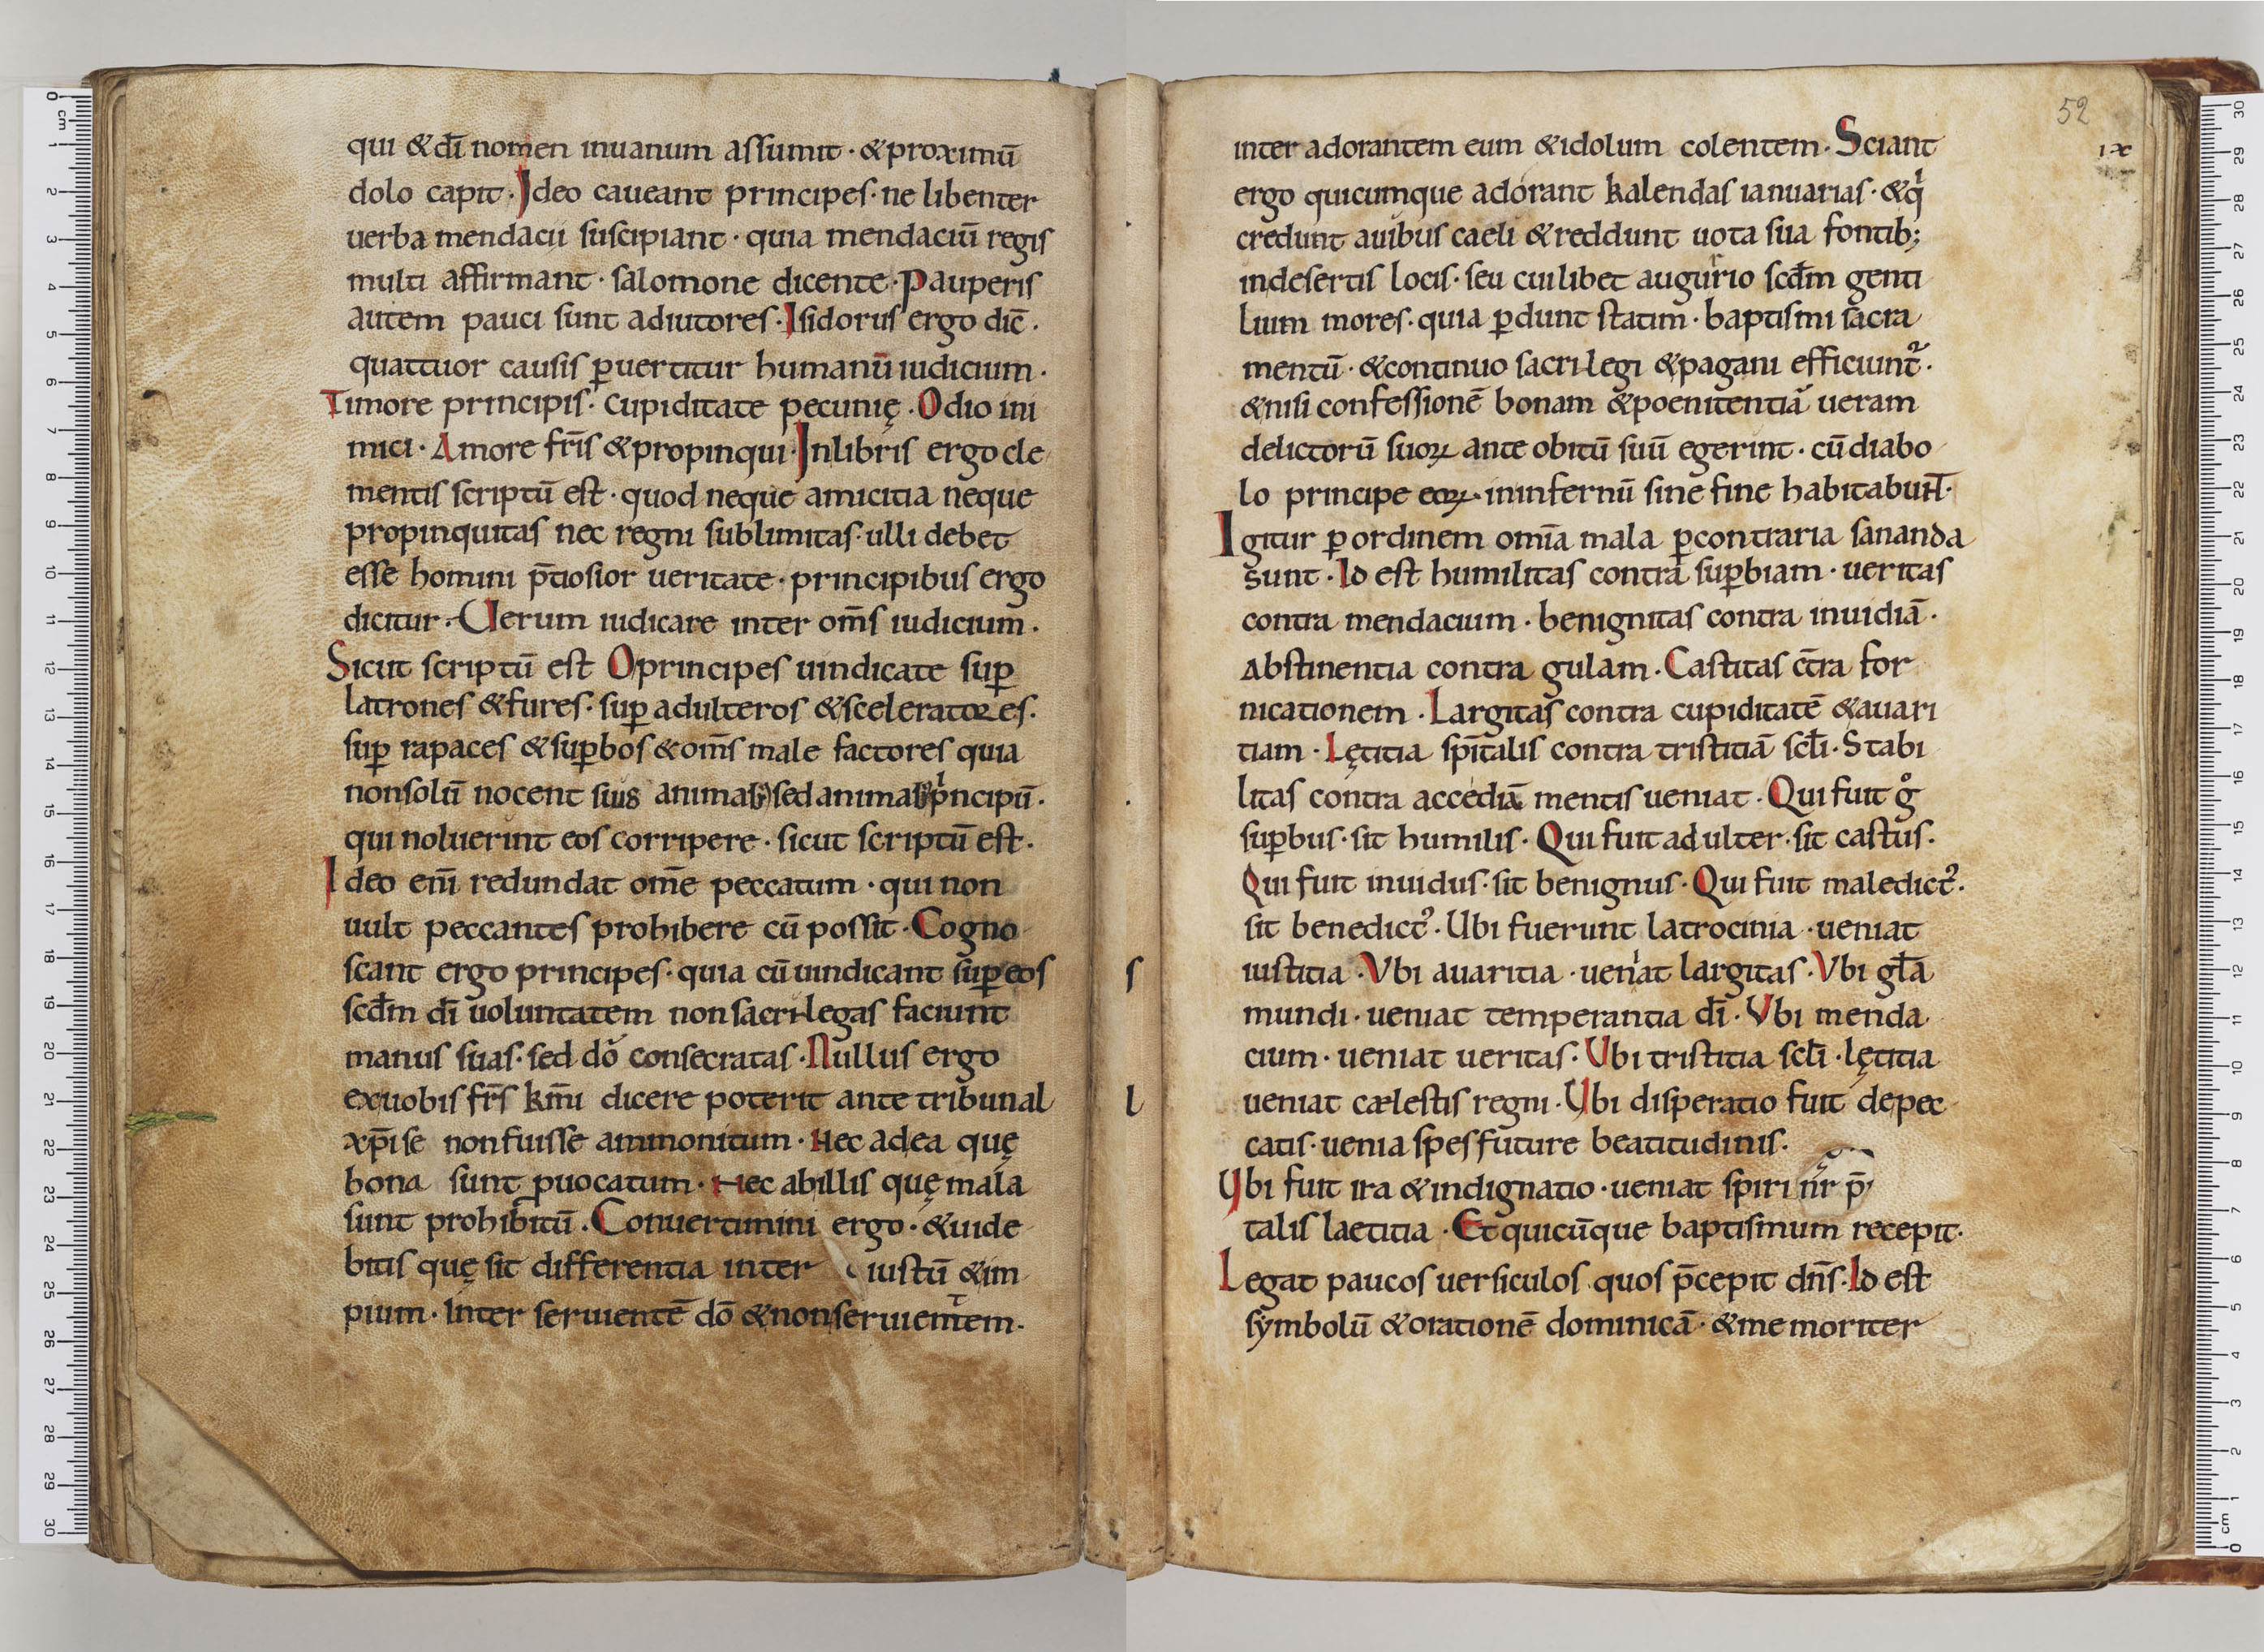 qui & dī nomen inuanum assumit · & proximū
dolo capit · Ideo caueant principes · ne libenter
uerba mendacii suscipiant · quia mendaciū regis
multi affirmant · salomone dicente · Pauperis
autem pauci sunt adiutores · Isidorus ergo dic̄ ·
quattuor causis ꝑuertitur humanū iudicium ·
Timore principis · Cupiditate pecunię · Odio ini
mici · Amore fr̄is & propinqui · Inlibris ergo cle
mentis scriptū est · quod neque amicitia neque
propinquitas nec regni sublimitas · ulli debet
esse homini p̄tiosior ueritate · principibus ergo
dicitur · Uerum iudicare inter om̄s iudicium ·
Sicut scriptū est O principes uindicate suꝑ
latrones & fures · suꝑ adulteros & sceleratores ·
suꝑ rapaces & suꝑbos & om̄s male factores quia
nonsolū nocent suis animab; sed animab; pͥncipū ·
qui noluerint eos corripere · sicut scriptū est ·
Ideo enī redundat om̄e peccatum · qui non
uult peccantes prohibere cū possit · Cogno
scant ergo principes · quia cū uindicant suꝑ eos
scd̄m dī uoluntatem non sacrilegas faciunt
manus suas · sed dō consecratas · Nullus ergo
exuobis fr̄s km̄i dicere poterit ante tribunal
xp̄i se nonfuisse ammonitum · Nec adea quę
bona sunt ꝓuocatum · Nec abillis quę mala
sunt prohibitū · Conuertimini ergo · & uide
bitis quę sit differentia inter iustū & im
pium · Inter seruientē dō & nonseruientem ·
52
ix
inter adorantem eum & idolum colentem · Sciant
ergo quicumque adorant kalendas ianuarias · & qͥ
credunt auibus caeli & reddunt uota sua fontib;
indesertis locis · seu cuilibet augurio scd̄m genti
lium mores · quia ꝑdunt statim · baptismi sacra
mentū · & continuo sacrilegi & pagani efficiunt᷑ ·
& nisi confessionē bonam & poenitentiā ueram
delictorū suoꝝ ante obitū suū egerint · cū diabo
lo principe eoꝝ · ininfernū sine fine habitabun̄t ·
Igitur ꝑ ordinem omīa mala ꝑ contraria sananda
sunt · Id est humilitas contra suꝑbiam · ueritas
contra mendacium · benignitas contra inuidiā ·
Abstinentia contra gulam · Castitas c̄tra for
nicationem · Largitas contra cupiditatē & auari
tiam · Lętitia spīt̄alis contra tristitiā scl̄i · Stabi
litas contra accediā mentis ueniat · Qui fuit gͦ
suꝑbus · sit humilis · Qui fuit adulter · sit castus ·
Qui fuit inuidus · sit benignus · Qui fuit maledict᾽ ·
sit benedict᾽ · Ubi fuerunt latrocinia · ueniat
s iustitia · Vbi auaritia · ueniat largitas · Vbi gl̄a
mundi · ueniat temperantia dī · Vbi menda
cium · ueniat ueritas · Ubi tristitia scl̄i · lętitia
l ueniat cælestis regni · Ubi disperatio fuit de pec
catis · uenia spes future beatitudinis ·
Ubi fuit ira & indignatio · ueniat spiri
talis laetitia · Et quicūque baptismum recepit ·
Legat paucos uersiculos quos p̄cepit dn̄s · Id est
symbolū & orationē dominicā · & memoriter